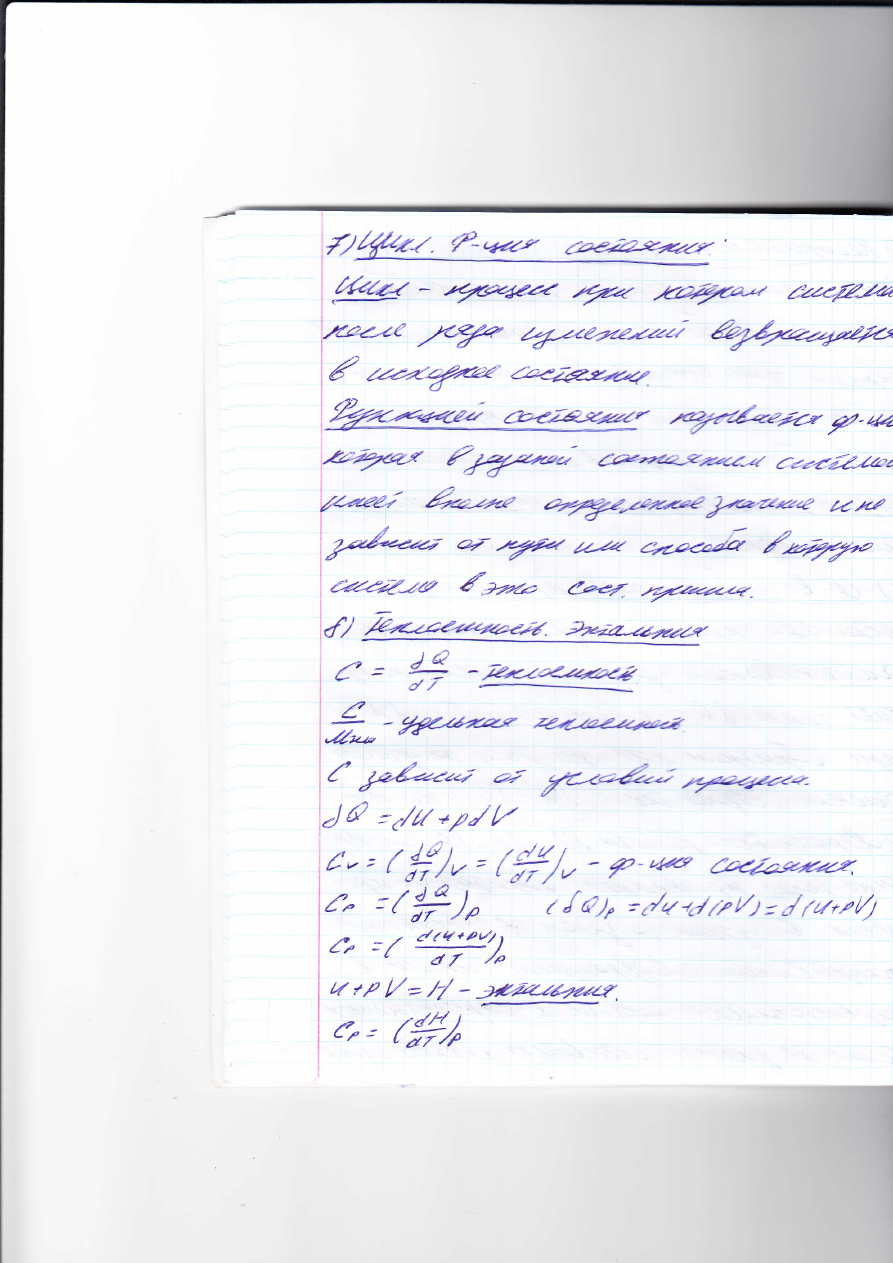 7) Цикл. Ф-ция состояния.
Цикл – процесс при котором система
после ряда изменений возвращается
в исходное состояние.
Функцией состояния называется ф-ци
которая в заданой состоянием системой
имеет вполне определенное значение и не
зависит от пути или способа в которую
система в это сост. пришла.
8) Теплоемкость. Энтальпия
C = δQ/dT – теплоемкость
C/ – удельная теплоемкость.
C зависит от условий процесса.
δQ = dU + pdV
Cv = (δQ/dT)v = (dU/dT)v – ф-ция состояния.
Cp = (δQ/dT)p (δQ)p = dU + d(pV) = d(U+pV)
Cp = (d(U+pV)/dT)p
U + pV = H – энтальпия.
Cp = (dH/dT)p